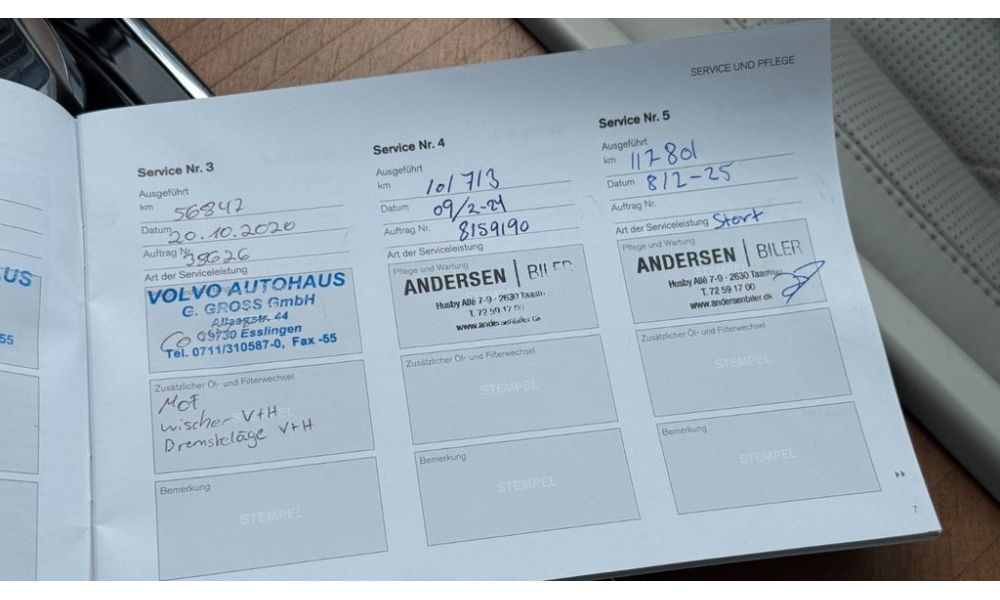 SERVICE UND PFLEGE
Service Nr. 3
Ausgeführt
km 56847
Datum 20.10.2020
Auftrag Nr. 38626
Art der Serviceleistung
VOLVO AUTOHAUS
G. GROSS GmbH
44
Esslingen
Tel. 0711/310587-0, Fax -55
Zusätzlicher Öl- und Filterwechsel
MOT
wischer V+H
Dremsbeläge V+H
Bemerkung
STEMPEL
Service Nr. 4
Ausgeführt
km 101713
Datum 09/2-21
Auftrag Nr. 8159190
Art der Serviceleistung
Pflege und Wartung
ANDERSEN | BILER
Husby Allé 7-9 - 2630 Taastrup
T. 72 59 17 00
www.andersenbiler.dk
Zusätzlicher Öl- und Filterwechsel
STEMPEL
Bemerkung
STEMPEL
Service Nr. 5
Ausgeführt
km 117801
Datum 8/2-25
Auftrag Nr.
Art der Serviceleistung Stort
Pflege und Wartung
ANDERSEN | BILER
Husby Allé 7-9 - 2630 Taastrup
T. 72 59 17 00
www.andersenbiler.dk
Zusätzlicher Öl- und Filterwechsel
STEMPEL
Bemerkung
STEMPEL
7
US
55